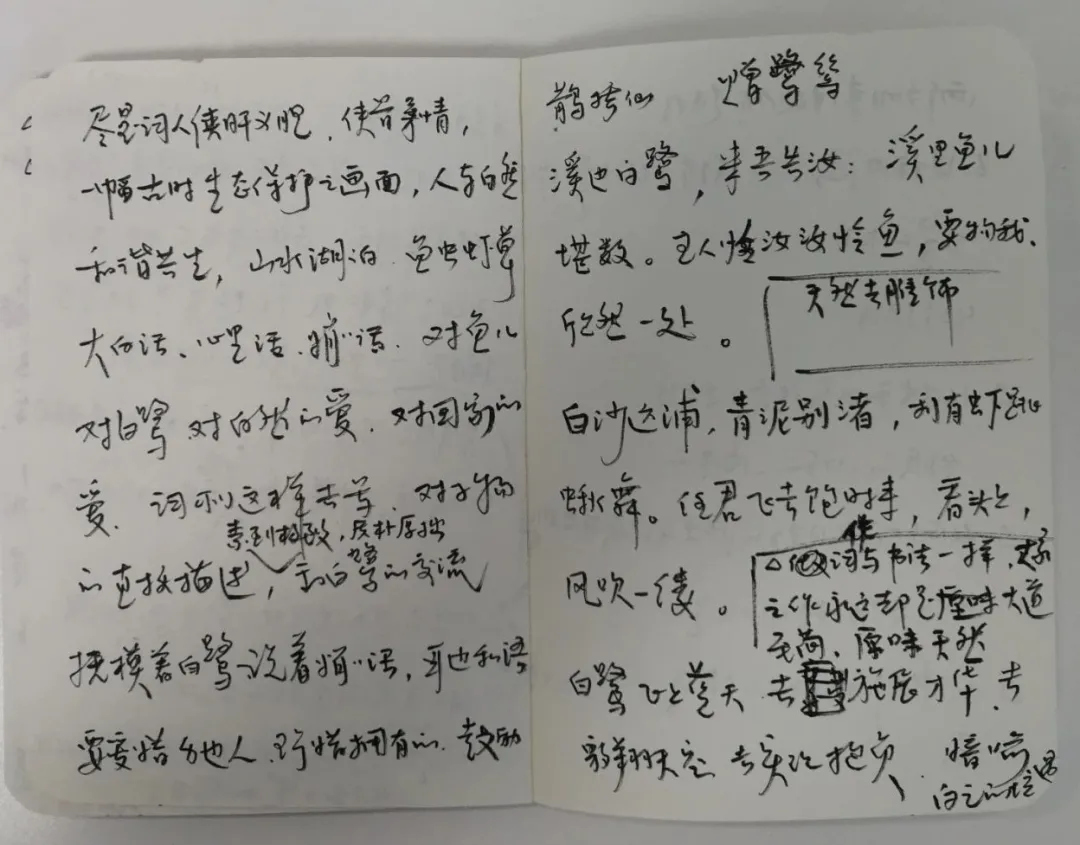 尽显词人侠肝义胆、侠骨柔情,
一幅古时生态保护之画面,人与自然
和谐共生,山水湖泊、鱼虫虾草
大白话、心里话、悄悄话、对鱼儿
对白鹭 对自然的爱、对国家的
爱、词到这样去写、对于物
素到极致,反朴厚拙
的直接描述,和白鹭的交流
抚摸着白鹭说着悄悄话,耳边私语
要爱惜他人、珍惜拥有的、鼓励
鹊桥仙 赠鹭鸶
溪边白鹭,来吾告汝:溪里鱼儿
堪数。主人怜汝汝怜鱼,要物我、
欣然一处。
天然去雕饰
白沙远浦,青泥别渚,剩有虾跳
鳅舞。任君飞去饱时来,看头上,
风吹一缕。
作词与书法一样、大家
之作永远却是原味大道
至简、原味天然
白鹭飞上蓝天 去施展才华、去
翱翔天空 去实现抱负、暗喻
自己的